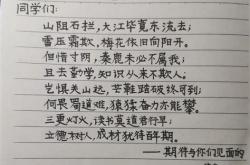 同学们:
山阻石拦,大江毕竟东流去;
雪压霜欺,梅花依旧向阳开。
但惜寸阴,秦鹿未必不属我;
且去勤学,知识从来不欺人。
岂惧关山远,苦难踏破终可到;
何畏蜀道难,猿猱奋力亦能攀。
三更灯火,读书莫道君行早;
立德树人,成材犹待醉期。
——期待与你们见面的